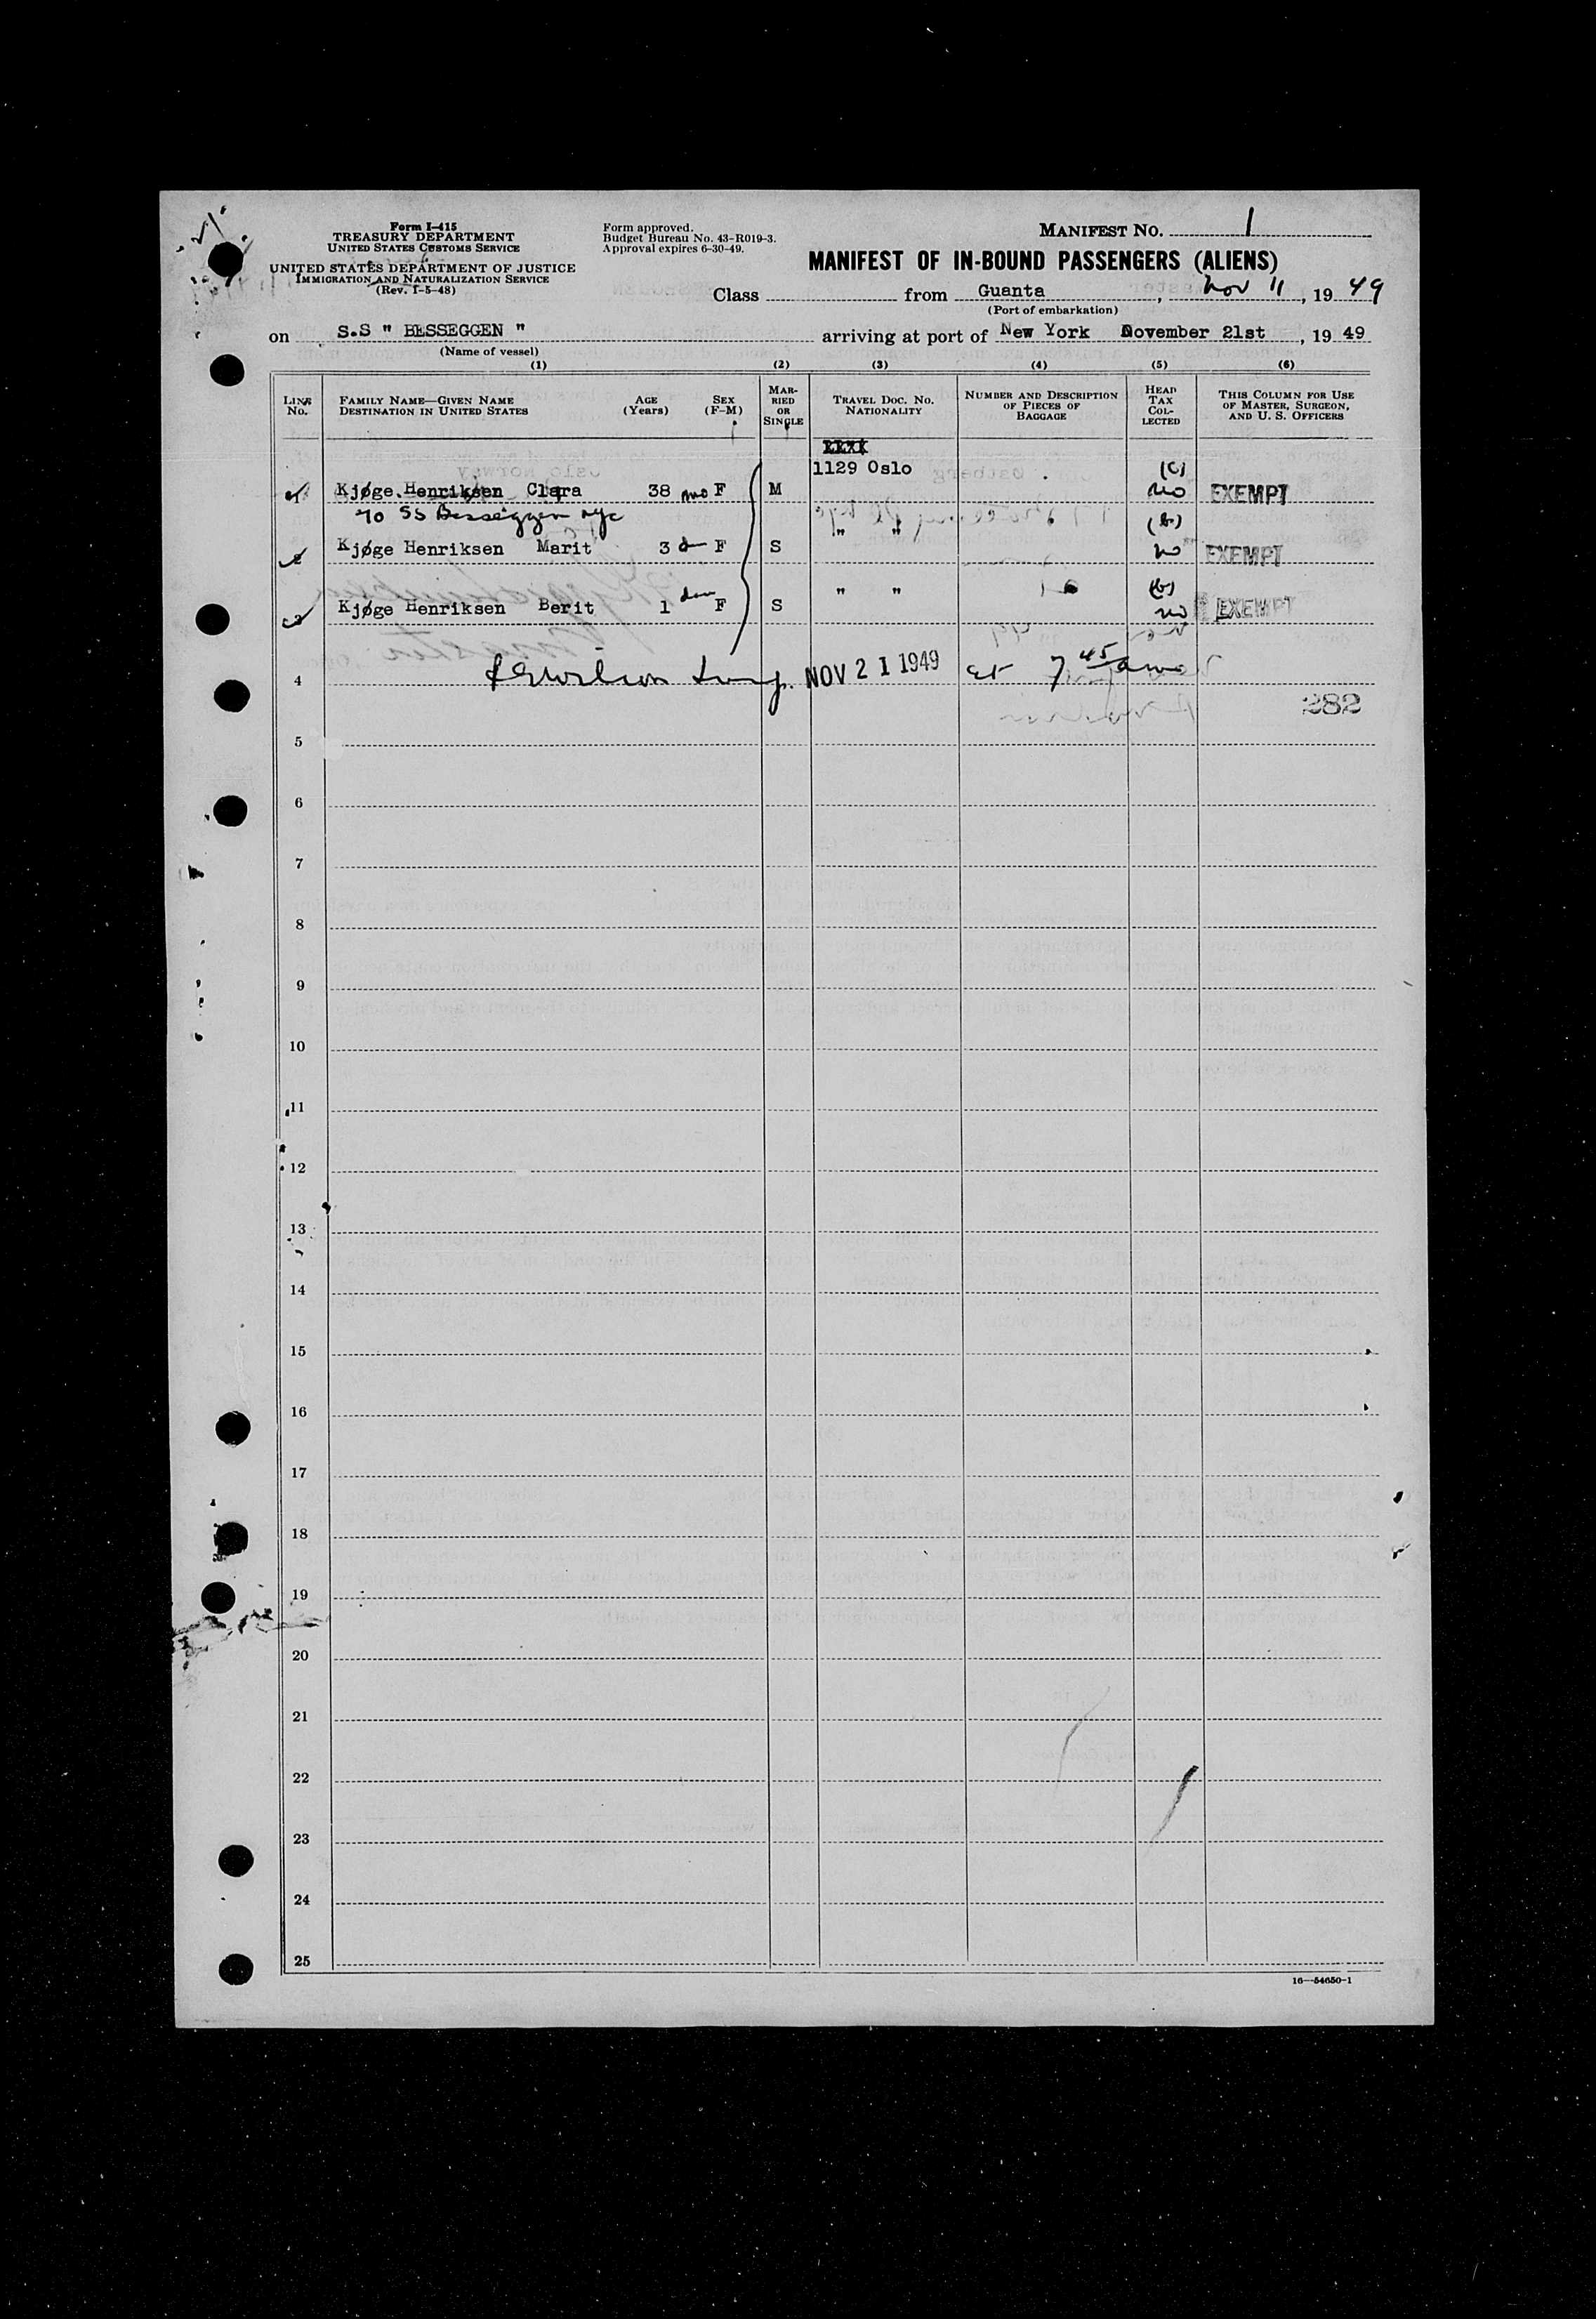 Form I-415
TREASURY DEPARTMENT
UNITED STATES CUSTOMS SERVICE
UNITED STATES DEPARTMENT OF JUSTICE
IMMIGRATION AND NATURALIZATION SERVICE
(Rev. 1-5-48)
Form approved.
Budget Bureau No. 43-R019-3.
Approval expires 6-30-49.
MANIFEST NO. 1
MANIFEST OF IN-BOUND PASSENGERS (ALIENS)
Class from Guanta, Nov 11, 19 49
(Port of embarkation)
on S.S " BESSEGGEN " arriving at port of New York November 21st, 19 49
(Name of vessel)
(1) (2) (3) (4) (5) (6)
LINE No. FAMILY NAME—GIVEN NAME DESTINATION IN UNITED STATES AGE (Years) SEX (F-M) MARRIED OR SINGLE TRAVEL DOC. NO. NATIONALITY NUMBER AND DESCRIPTION OF PIECES OF BAGGAGE HEAD TAX COLLECTED THIS COLUMN FOR USE OF MASTER, SURGEON, AND U. S. OFFICERS
1129 Oslo (c)
1 Kjøge Henriksen Clara 38 F M no EXEMPT
c/o SS Besseggen nyc
" " (b)
2 Kjøge Henriksen Marit 3 F S no EXEMPT
" " (b)
3 Kjøge Henriksen Berit 1 F S no EXEMPT
4 NOV 21 1949 at 7 45 am
282
5
6
7
8
9
10
11
12
13
14
15
16
17
18
19
20
21
22
23
24
25
16—54650-1